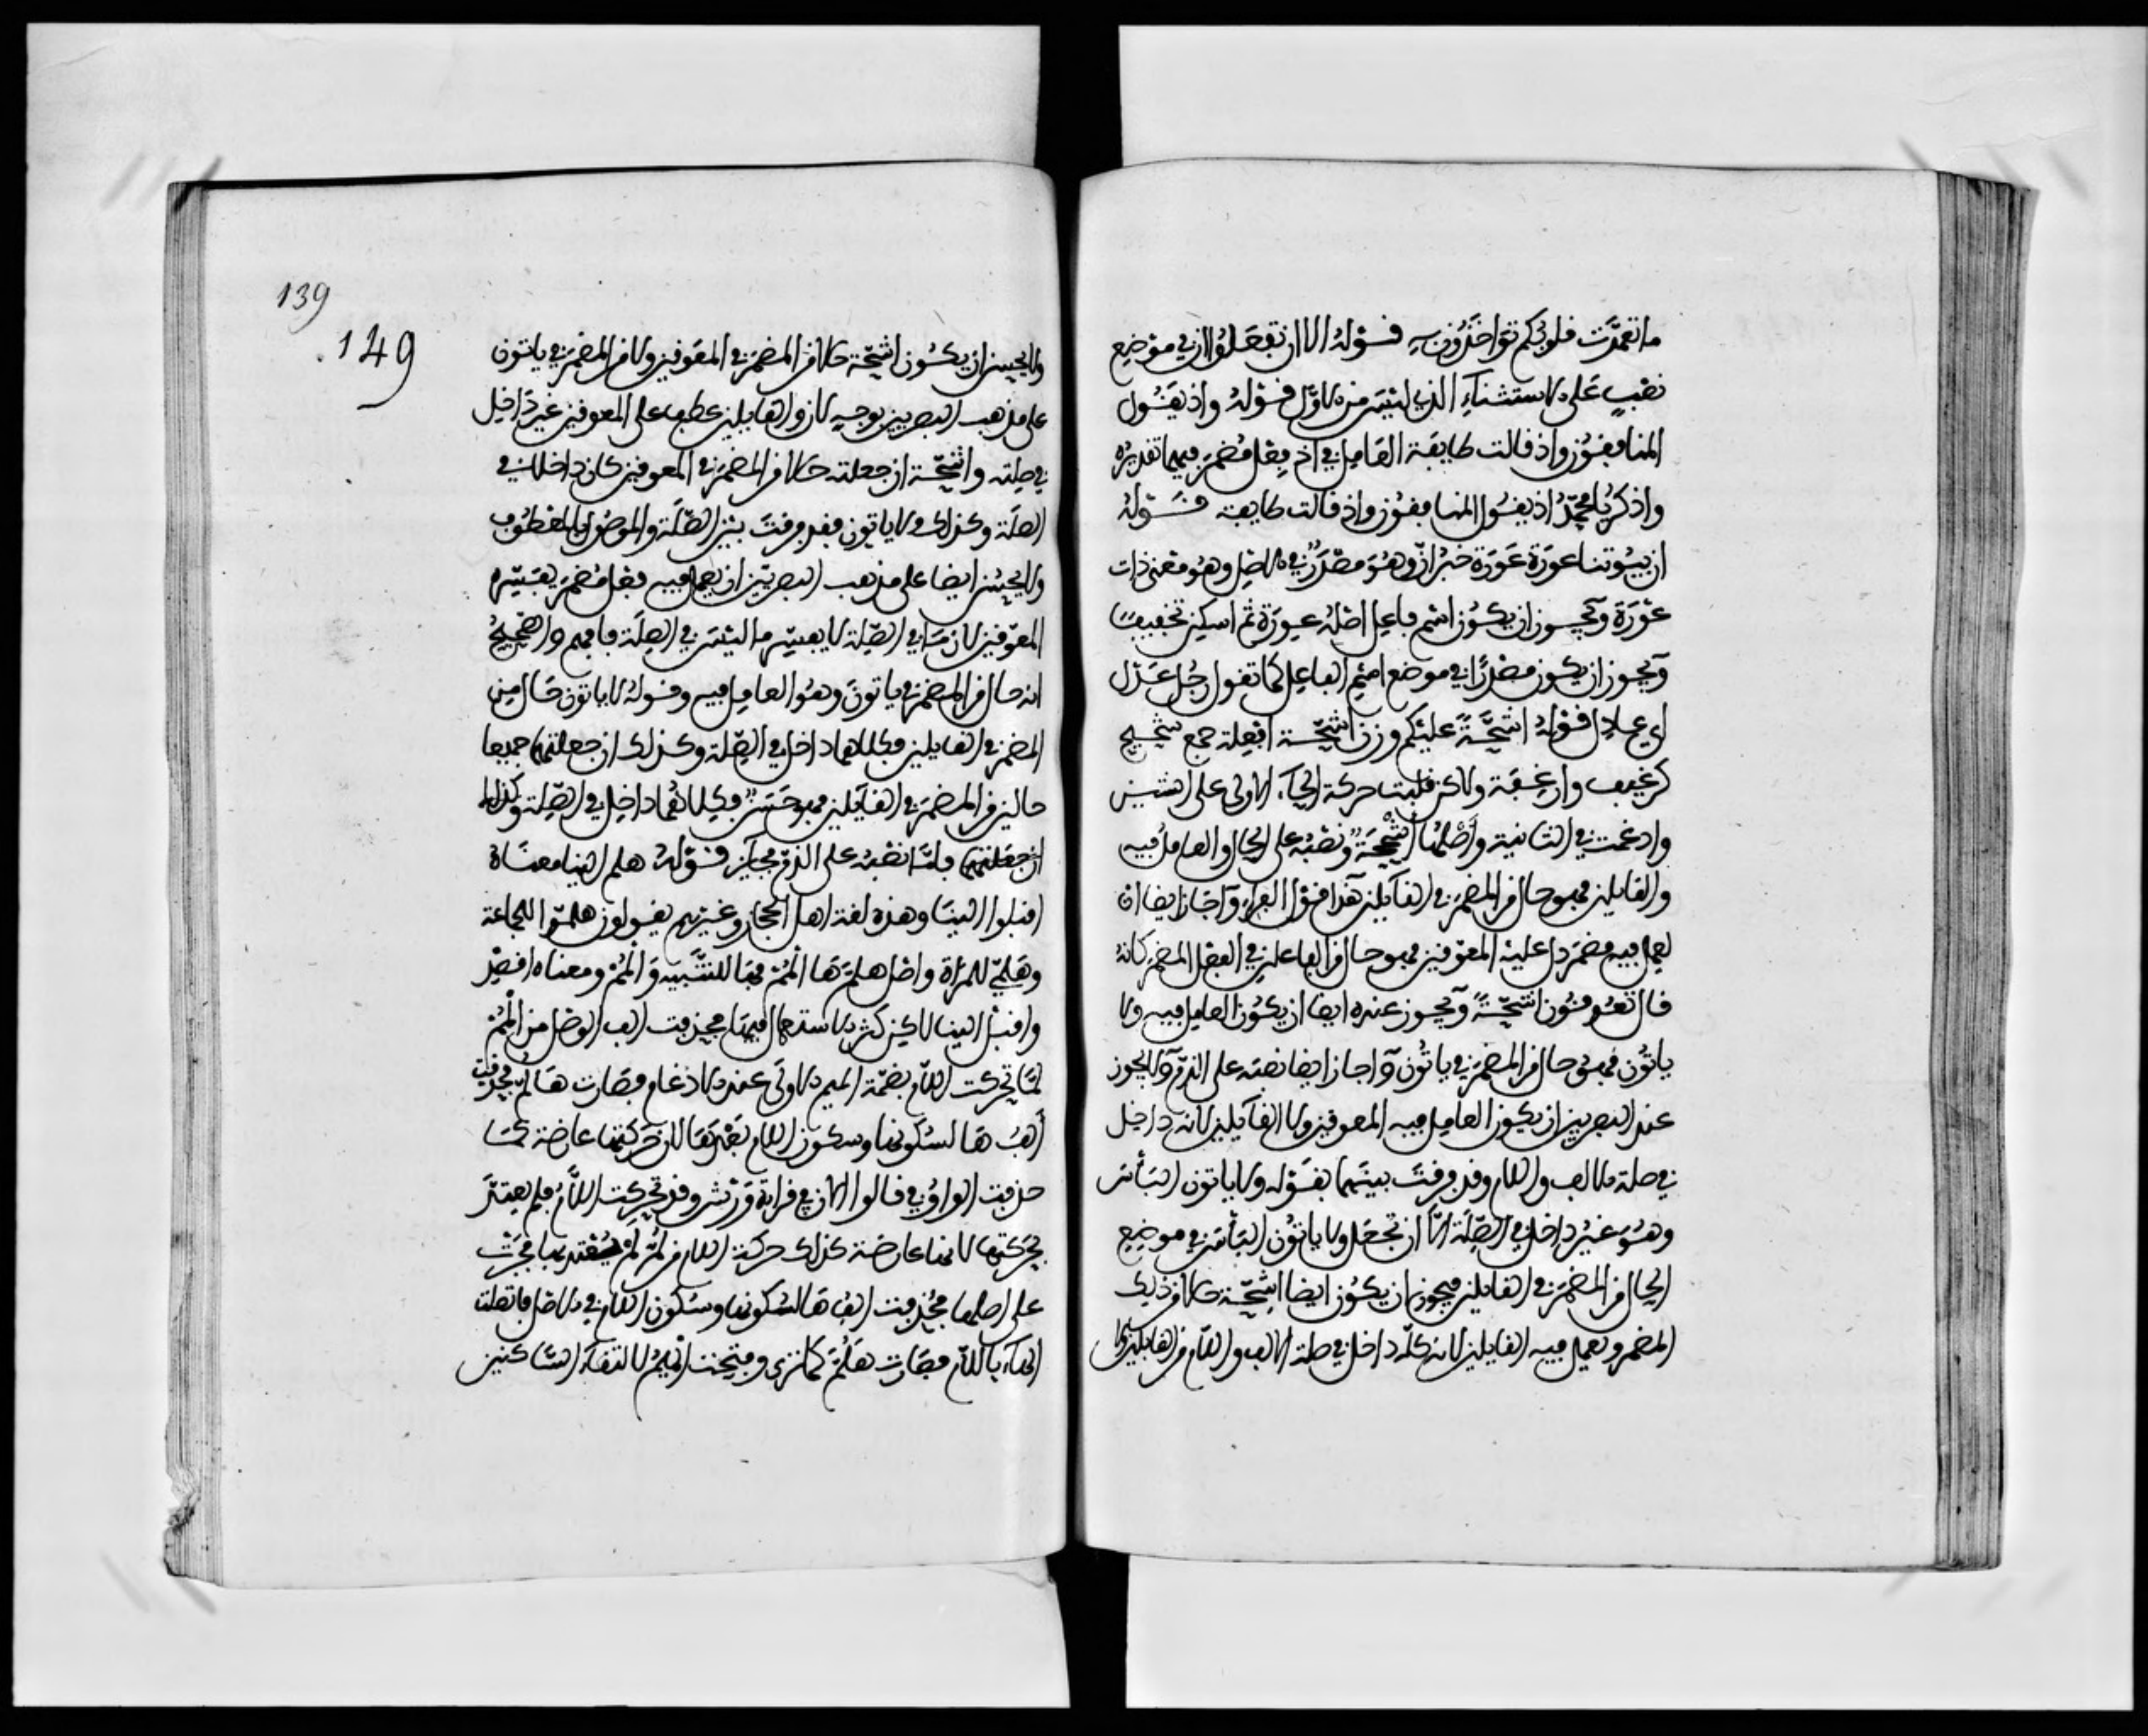 ما تعمدت قلوبكم تواخذون به قوله الا ان تفعلوا ان في موضع
نصب على الاستثناء الذي ليس من الاول قوله واذ يقول
المنافقون واذ قالت طايفة العامل في اذ فعل مضمر فيهما تقديره
واذكر يا محمد اذ يقول المنافقون واذ قالت طايفة قوله
ان بيوتنا عورة عورة خبر ان وهو مصدر في الاصل وهو معنى ذات
عورة ويجوز ان يكون اسم فاعل اصله عورة ثم اسكن تخفيفا
ويجوز ان يكون مصدرا في موضع اسم الفاعل كما تقول رجل عدل
اي عادل قوله اشحة عليكم وزن اشحة افعلة جمع شحيح
كرغيف وارغفة ولاكن قلبت حركة الحاء الاولى على الشين
وادغمت في الثانية واصلها اشححة ونصبه على الحال والعامل فيه
والقايلين فهو حال من المضمر في القايلين هذا قول الفراء واجاز ايضا ان
يعمل فيه مضمر دل عليه المعوقين فهو حال من الفاعلين في الفعل المضمر كانه
قال يعوقون اشحة ويجوز عنده ايضا ان يكون العامل فيه ولا
ياتون فهو حال من المضمر في ياتون واجاز ايضا نصبه على الذم ولا يجوز
عند البصريين ان يكون العامل فيه المعوقين ولا القايلين لانه داخل
في صلة الالف واللام وقد فرقت بينهما بقوله ولا ياتون الباس
وهو غير داخل في الصلة الا ان تجعل ولا ياتون الباس في موضع
الحال من المضمر في القايلين فيجوز ان يكون ايضا اشحة حالا من ذلك
المضمر ويعمل فيه القايلين لانه كله داخل في صلة الالف واللام من القايلين
139
149
ولا يحسن ان يكون اشحة حالا من المضمر في المعوقين ولا من المضمر في ياتون
على مذهب البصريين بوجه لان والقايلين عطف على المعوقين غير داخل
في صلته واشحة ان جعلته حالا من المضمر في المعوقين كان داخلا في
الصلة وكذلك ولا ياتون فقد فرقت بين الصلة والموصول بالمعطوف
ولا يحسن ايضا على مذهب البصريين ان يعمل فيه فعل مضمر يفسره
المعوقين لان ما في الصلة لا يفسر ما ليس في الصلة فافهم والصحيح
انه حال من المضمر في ياتون وهو العامل فيه وقوله لا ياتون حال من
المضمر في القايلين فكلاهما داخل في الصلة وكذلك ان جعلتهما جميعا
حالين من المضمر في القايلين فهو حسن وكلاهما داخل في الصلة وكذلك
ان جعلتهما فاما نصبه على الذم فجايز قوله هلم الينا معناه
اقبلوا الينا وهذه لغة اهل الحجاز وغيرهم يقولون هلموا للجماعة
وهلمي للمراة واصل هلم ها المم فها للتنبيه والمم ومعناه اقصد
واقبل الينا لاكن كثر الاستعمال فيها فحذفت الف الوصل من المم
لما تحركت اللام بضمة الميم الاولى عند الادغام فصارت ها لم فحذفت
الف ها لسكونها وسكون اللام بعدها لان حركتها عارضة كما
حذفت الواو في قالوا الان في قراءة ورش وقد تحركت اللام فلم يعتد
بحركتها لانها عارضة كذلك حركة اللام من لم لم يعتد بها فجرت
على اصلها فحذفت الف ها لسكونها وسكون اللام في الاصل فاتصلت
الهاء باللام فصارت هلم كما ترى وفتحت الميم لالتقاء الساكنين